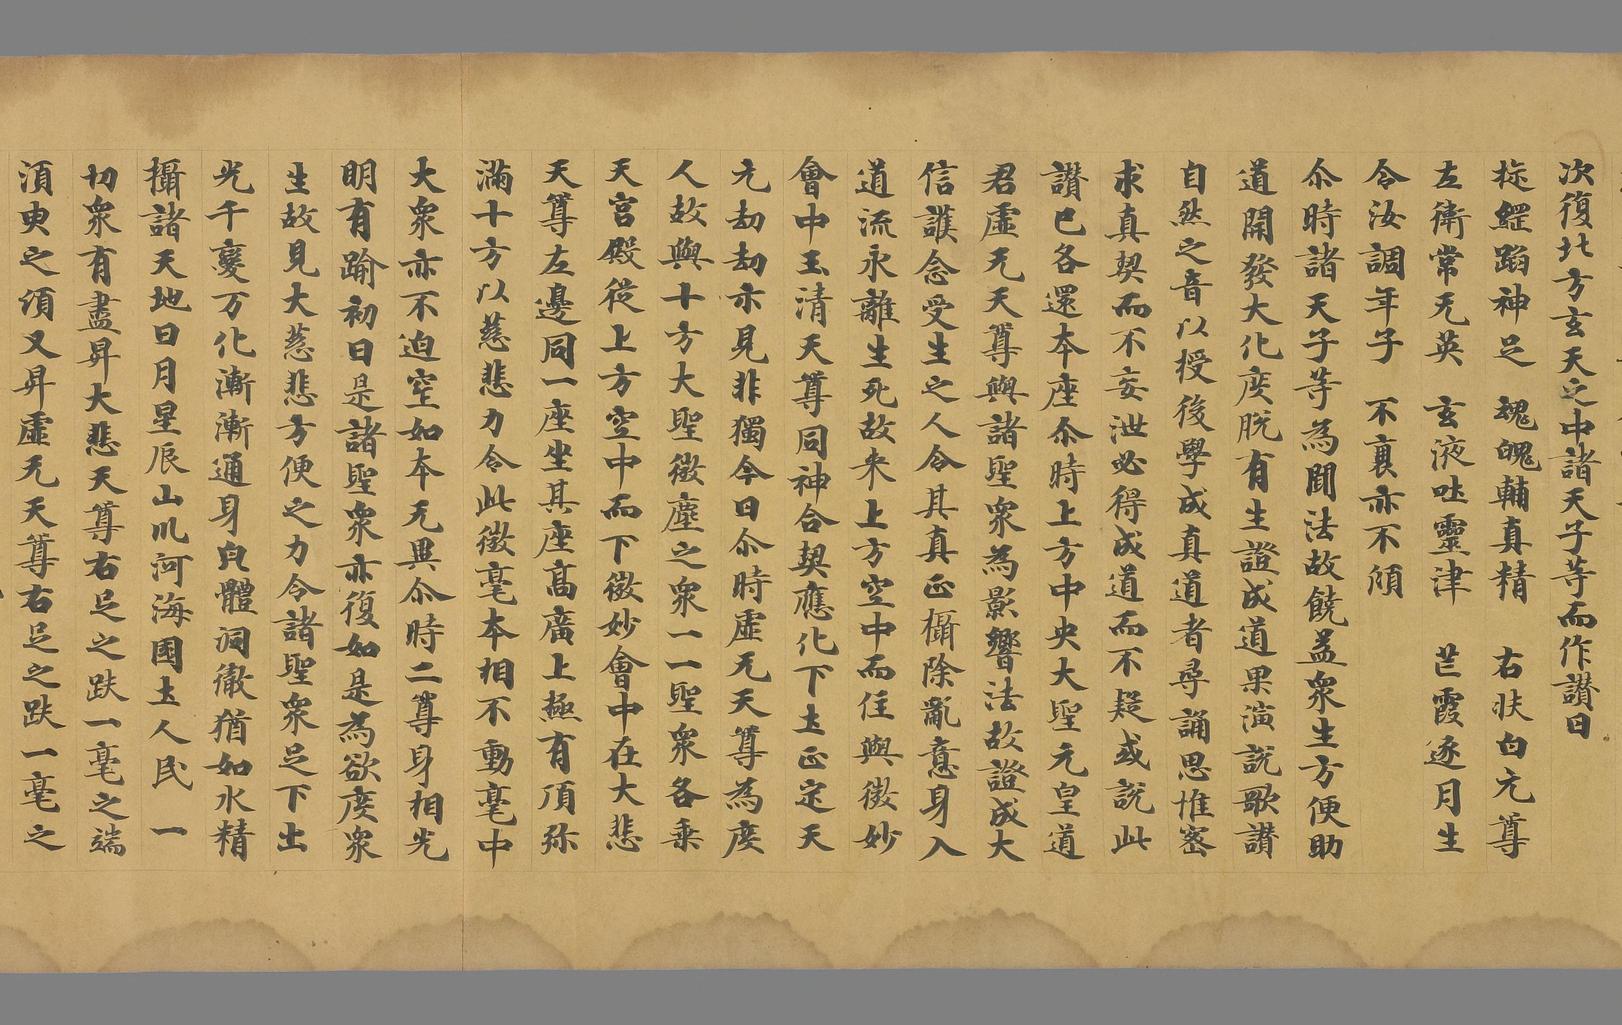 次復北方玄天之中諸天子等而作讚曰
蹈神足　魂魄輔真精　右扶白元尊
左衛常无英　玄液吐靈津　芒霞逐月生
令汝調年子　不衰亦不傾
尒時諸天子等為聞法故饒益衆生方便助
道開發大化度脫有生證成道果演說歌讚
自然之音以授後學成真道者尋誦思惟密
求真契而不妄泄必得成道而不疑或說此
讚已各還本座尒時上方中央大聖元皇道
君虛无天尊與諸聖衆為影響法故證成大
信護念受生之人令其真正攝除亂意身入
道流永離生死故来上方空中而住與微妙
會中玉清天尊同神合契應化下土正定天
元劫劫亦見非獨今日尒時虛无天尊為度
人故與十方大聖微塵之衆一一聖衆各乗
天宮殿從上方空中而下微妙會中在大悲
天尊左邊同一座坐其座高廣上極有頂弥
滿十方以慈悲力令此微毫本相不動毫中
大衆亦不迫空如本无異尒時二尊身相光
明有踰初日是諸聖衆亦復如是為欲度衆
生故見大慈悲方便之力令諸聖衆足下出
光千變万化漸漸通身皃體洞徹猶如水精
攝諸天地日月星辰山川河海國土人民　一
切衆有盡昇大悲天尊右足之趺一毫之端
湏臾之須又昇虛无天尊右足之趺一毫之